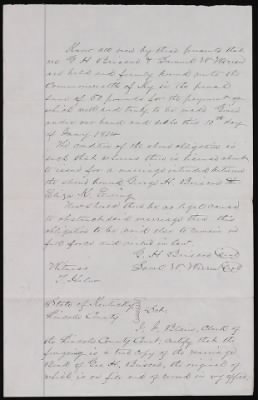 Know all men by these presents that
we G. H. Briscoe & Saml W Warren
are held and firmly bound unto the
Commonwealth of Ky in the penal
sum of 50 pounds for the payment of
which well and truly to be made Given
under our hand and this 10th day
of Jany 1814
The condition of the above obligation is
such that whereas there is license about
to issue for a marriage intended between
the above bound George H. Briscoe &
Eliza K.
Now should there be no legal cause
to obstruct said marriage then this
obligation to be void else to remain in
full force and in law.
G. H. Briscoe
Saml W Warren
Witness
T.
State of Kentucky
Lincoln County Sct.
I, G. Blain, Clerk of
the Lincoln County Court, certify that the
foregoing is a true copy of the marriage
Bond of Geo H. Briscoe, the original of
which is on file and of record in my office,